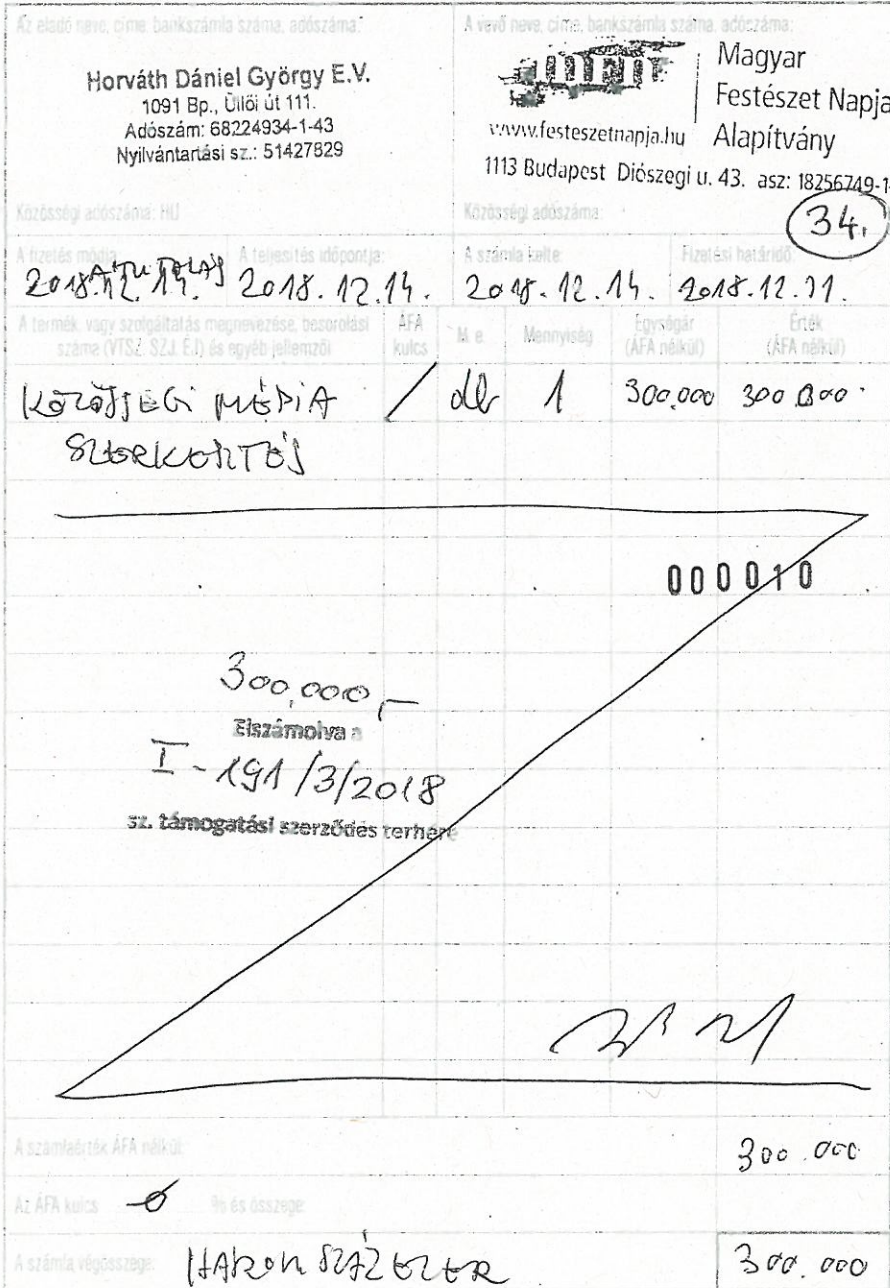 Az eladó neve, címe, bankszámla száma, adószáma:
Horváth Dániel György E.V.
1091 Bp., Üllői út 111.
Adószám: 68224934-1-43
Nyilvántartási sz.: 51427829
Közösségi adószáma: HU
A vevő neve, címe, bankszámla száma, adószáma:
Magyar
Festészet Napja
Alapítvány
www.festeszetnapja.hu
1113 Budapest Diószegi u. 43. asz: 18256749-1-
Közösségi adószáma:
34.
A fizetés módja: A teljesítés időpontja: A számla kelte: Fizetési határidő:
ÁTUTALÁS
2018.12.14. 2018.12.14. 2018.12.14. 2018.12.31.
A termék, vagy szolgáltatás megnevezése, besorolási száma (VTSZ, SZJ, ÉJ) és egyéb jellemzői
ÁFA kulcs
M. e.
Mennyiség
Egységár (ÁFA nélkül)
Érték (ÁFA nélkül)
KÖZÖSSÉGI MÉDIA / db 1 300.000 300.000.
SZERKESZTÉS
000010
300.000,-
Elszámolva a
I - 191/3/2018
sz. támogatási szerződés terhére
A számlaérték ÁFA nélkül: 300.000
Az ÁFA kulcs 0 % és összege:
A számla végösszege: HÁROMSZÁZEZER 300.000